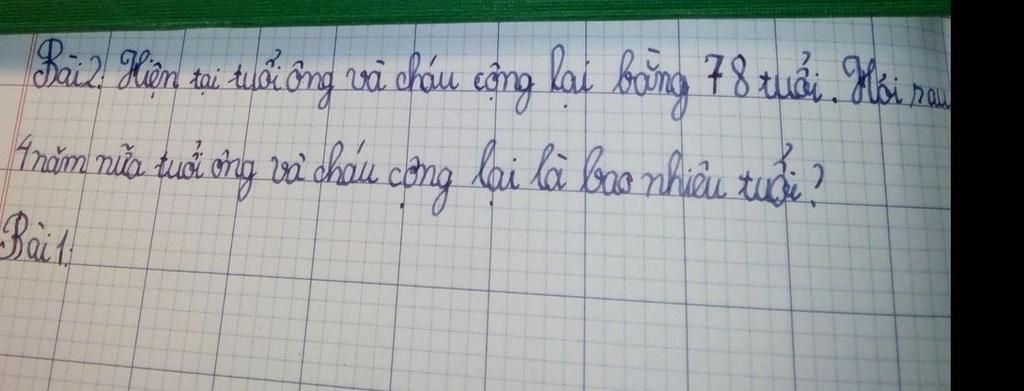 Bài 2: Hiện tại tuổi ông và cháu cộng lại bằng 78 tuổi. Hỏi sau
4 năm nữa tuổi ông và cháu cộng lại là bao nhiêu tuổi?
Bài 1: